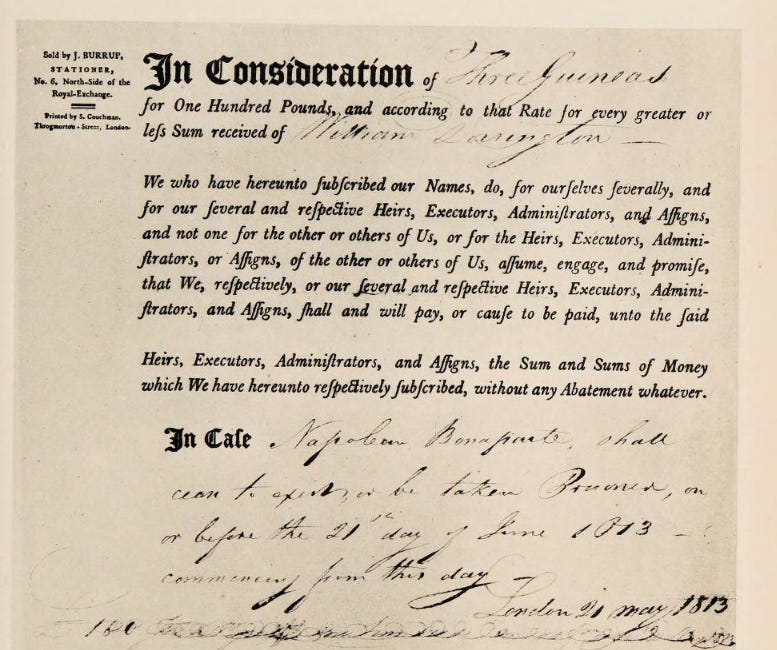 Sold by J. BURRUP,
STATIONER,
No. 6, North-Side of the
Royal-Exchange.
Printed by S. Couchman,
Throgmorton-Street, London.
In Consideration of Three Guineas
for One Hundred Pounds, and according to that Rate for every greater or
leſs Sum received of William Dorington —
We who have hereunto ſubſcribed our Names, do, for ourſelves ſeverally, and
for our ſeveral and reſpective Heirs, Executors, Adminiſtrators, and Aſſigns,
and not one for the other or others of Us, or for the Heirs, Executors, Admini-
ſtrators, or Aſſigns, of the other or others of Us, aſſume, engage, and promiſe,
that We, reſpectively, or our ſeveral and reſpective Heirs, Executors, Admini-
ſtrators, and Aſſigns, ſhall and will pay, or cauſe to be paid, unto the ſaid
Heirs, Executors, Adminiſtrators, and Aſſigns, the Sum and Sums of Money
which We have hereunto reſpectively ſubſcribed, without any Abatement whatever.
In Caſe Napoleon Bonaparte, shall
ceas to exist, or be taken Prisoner, on
or before the 21st day of June 1813 —
commencing from this day —
London 21 may 1813